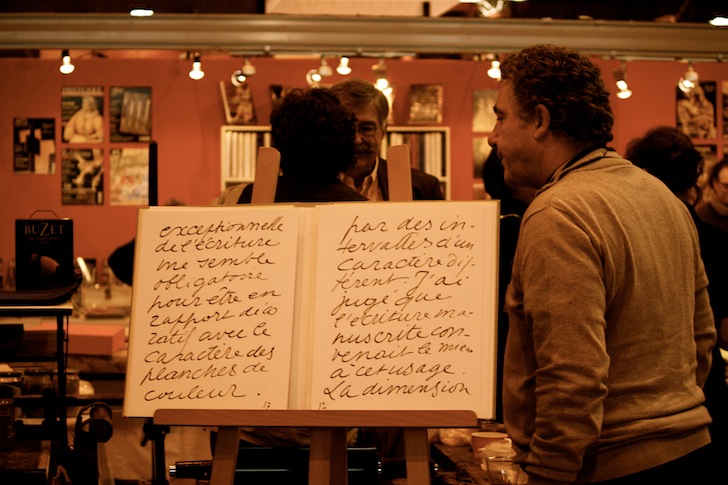 BUZET
exceptionnelle
de l'écriture
me semble
obligatoire
pour être en
rapport déco
ratif avec le
caractère des
planches de
couleur.
12
par des in-
tervalles d'un
caractère dif-
férent. J'ai
jugé que
l'écriture ma-
nuscrite con-
venait le mieux
à cet usage.
La dimension
12